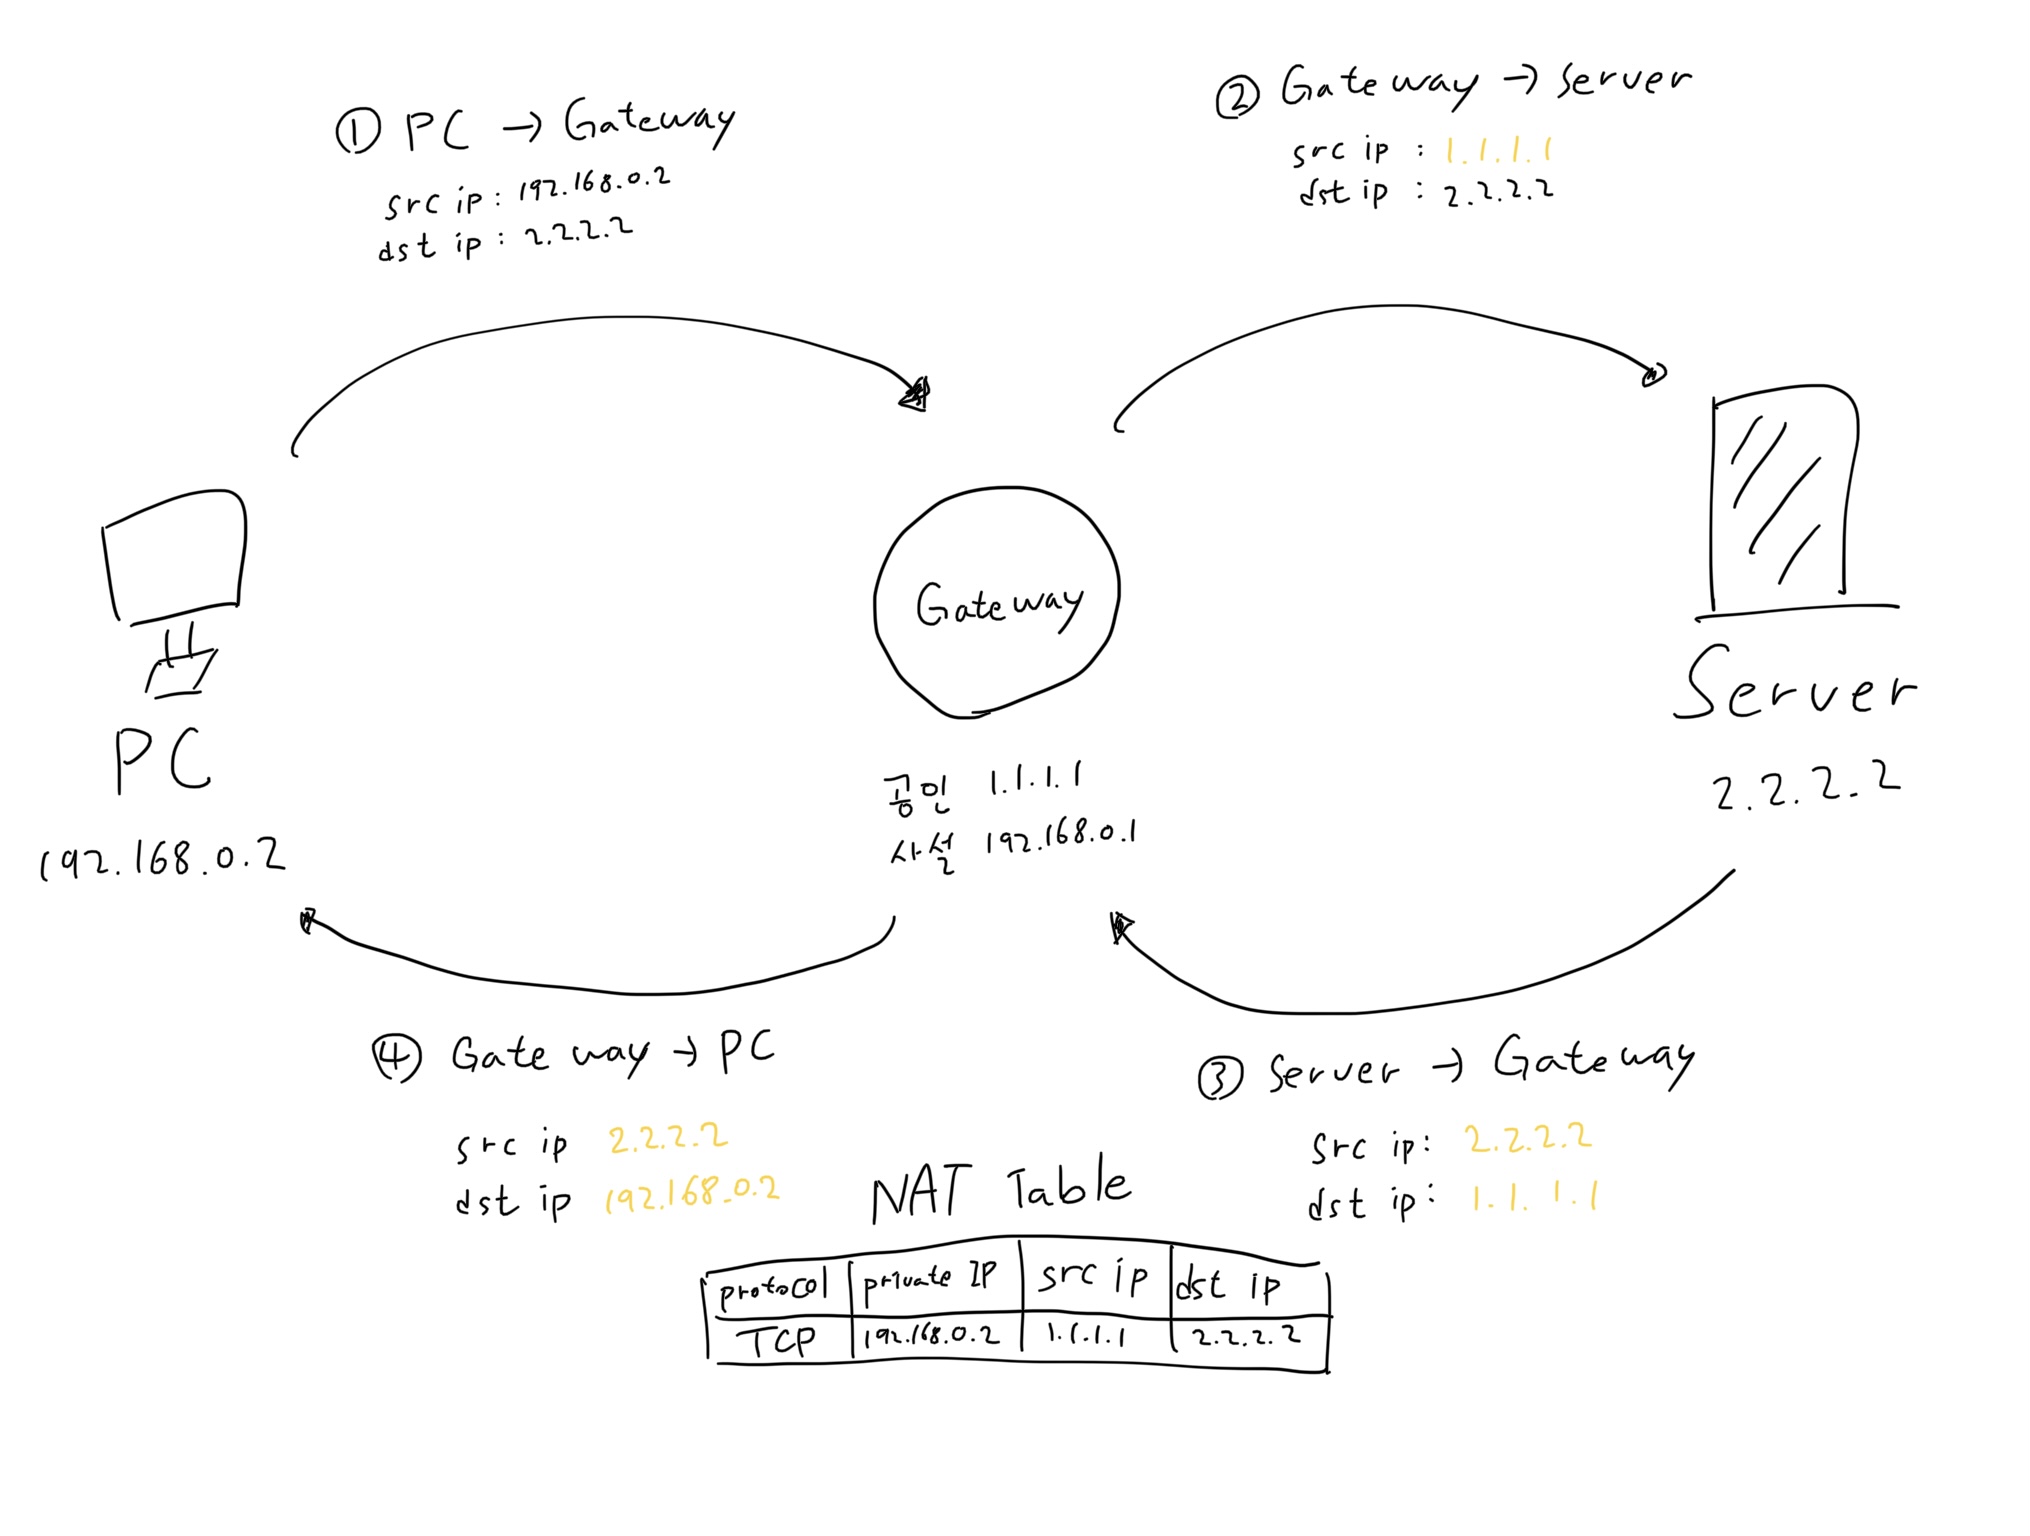 ① PC → Gateway
src ip : 192.168.0.2
dst ip : 2.2.2.2
② Gateway → server
src ip : 1.1.1.1
dst ip : 2.2.2.2
Gateway
공인 1.1.1.1
사설 192.168.0.1
PC
192.168.0.2
Server
2.2.2.2
④ Gateway → PC
src ip 2.2.2.2
dst ip 192.168.0.2
③ Server → Gateway
src ip: 2.2.2.2
dst ip: 1.1.1.1
NAT Table
protocol private IP src ip dst ip
TCP 192.168.0.2 1.1.1.1 2.2.2.2